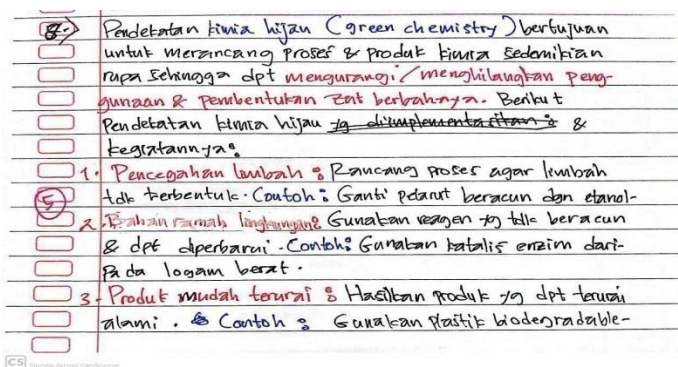 8.) Pendekatan kimia hijau (green chemistry) bertujuan
untuk merancang proses & produk kimia sedemikian
rupa sehingga dpt mengurangi/menghilangkan peng-
gunaan & pembentukan zat berbahaya. Berikut
Pendekatan kimia hijau yg diimplementasikan : &
kegiatannya :
1. Pencegahan limbah : Rancang proses agar limbah
5 tdk terbentuk. Contoh : Ganti pelarut beracun dgn etanol-
2. Bahan ramah lingkungan : Gunakan reagen yg tdk beracun
& dpt diperbarui. Contoh : Gunakan katalis enzim dari-
pada logam berat.
3. Produk mudah terurai : Hasilkan produk yg dpt terurai
alami. Contoh : Gunakan plastik biodegradable-
CS